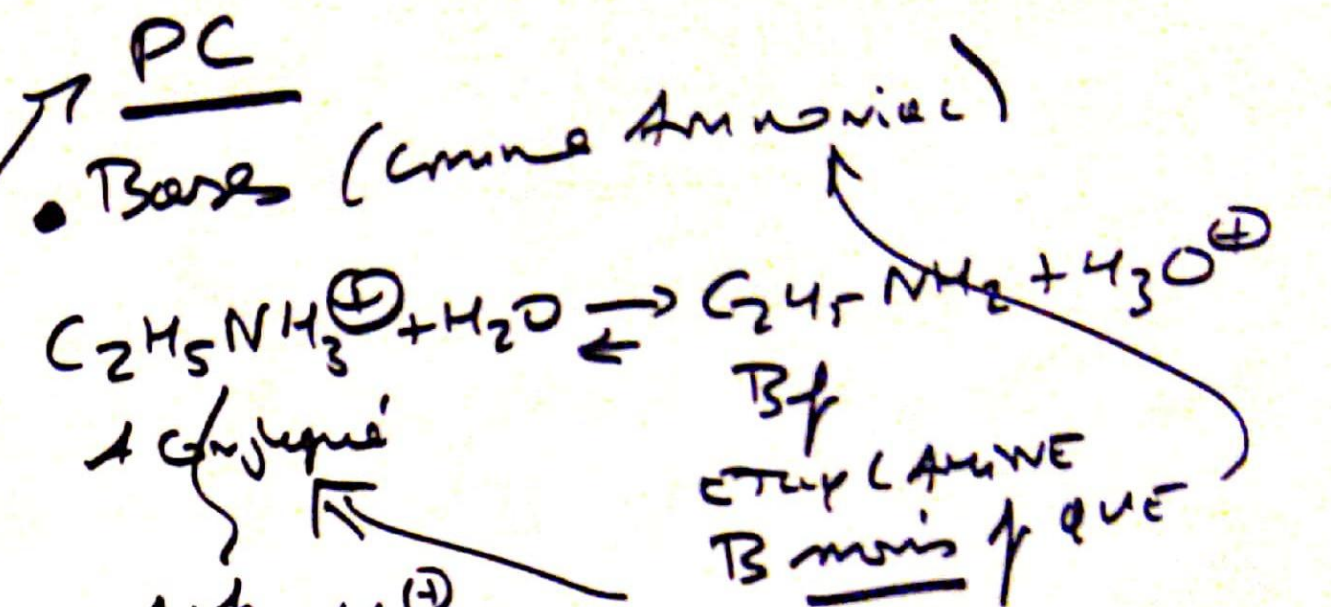 PC
• Bases (comme Ammoniac)
C2H5NH3⊕ + H2O ⇌ C2H5NH2 + H3O⊕
A conjugué
Bf
ETHYLAMINE
B moins f QUE